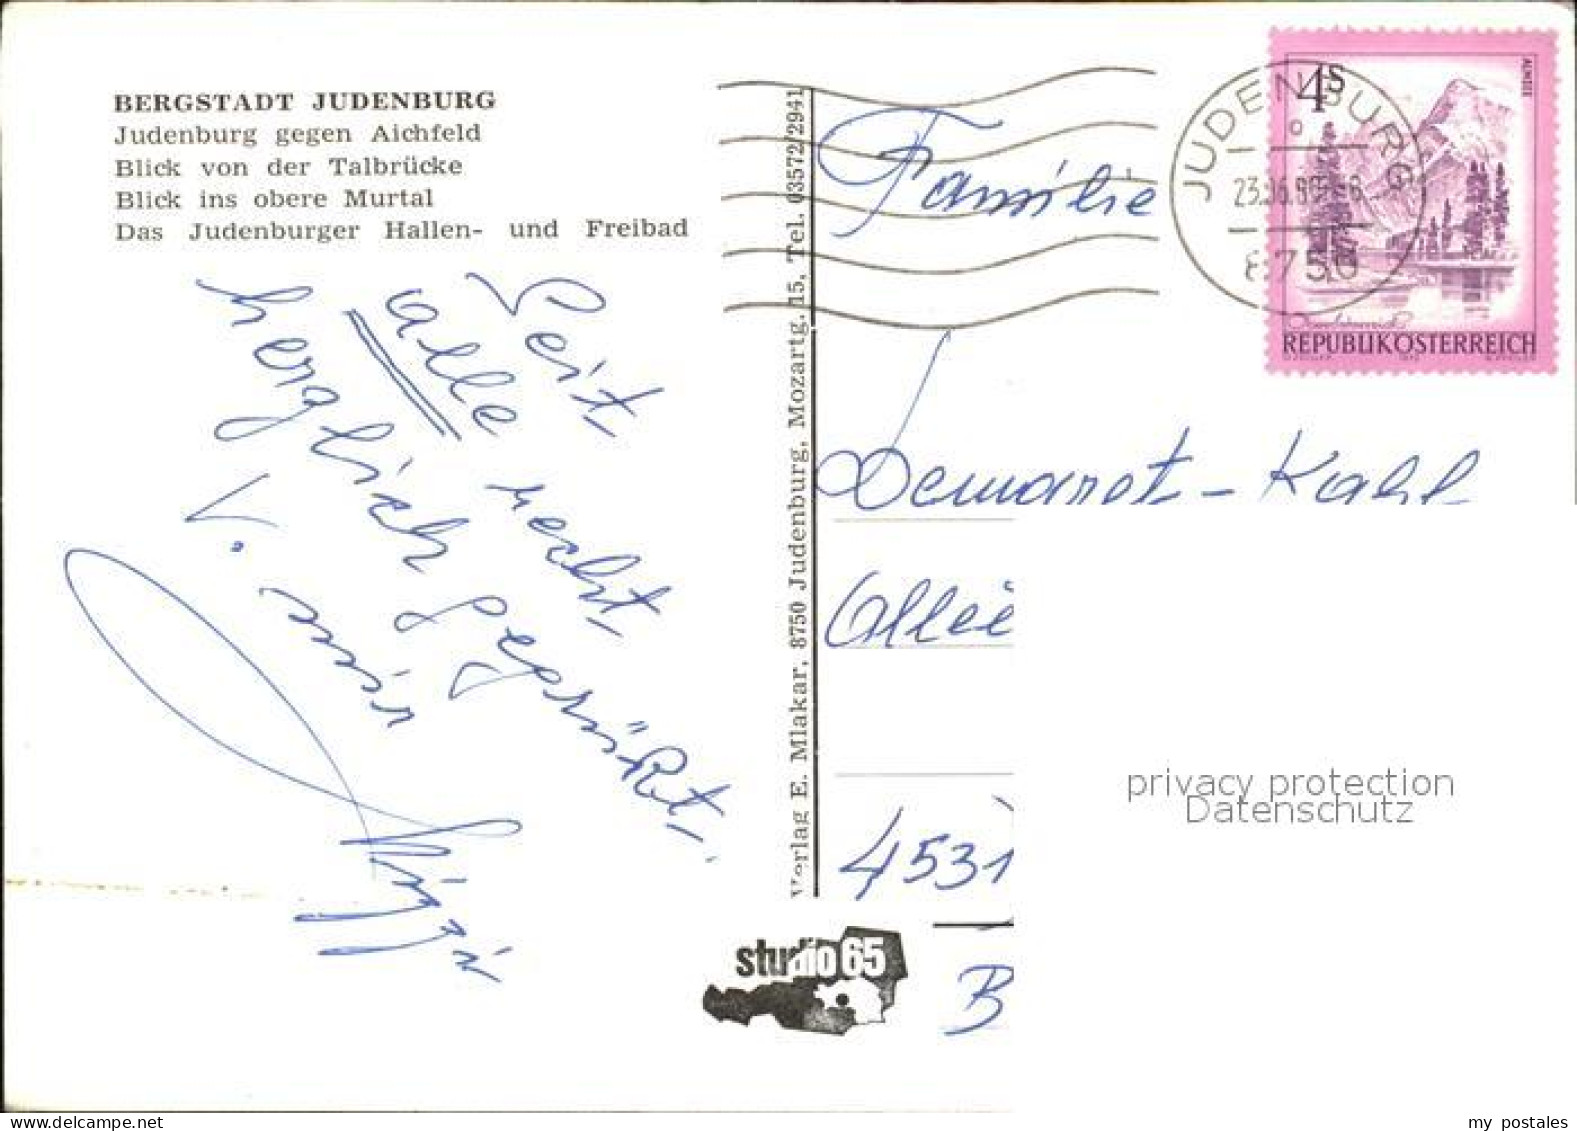 BERGSTADT JUDENBURG
Judenburg gegen Aichfeld
Blick von der Talbrücke
Blick ins obere Murtal
Das Judenburger Hallen- und Freibad
Seit
alle recht
herzlich gegrüßt
V. mir
Verlag E. Mlakar, 8750 Judenburg, Mozartg. 15, Tel. 03572/2941
studio 65
JUDENBURG
8750
4S
ALMSEE
Oberösterreich
REPUBLIK ÖSTERREICH
Familie
Demaret-Kahl
Allée
4531
B
privacy protection
Datenschutz
my postales